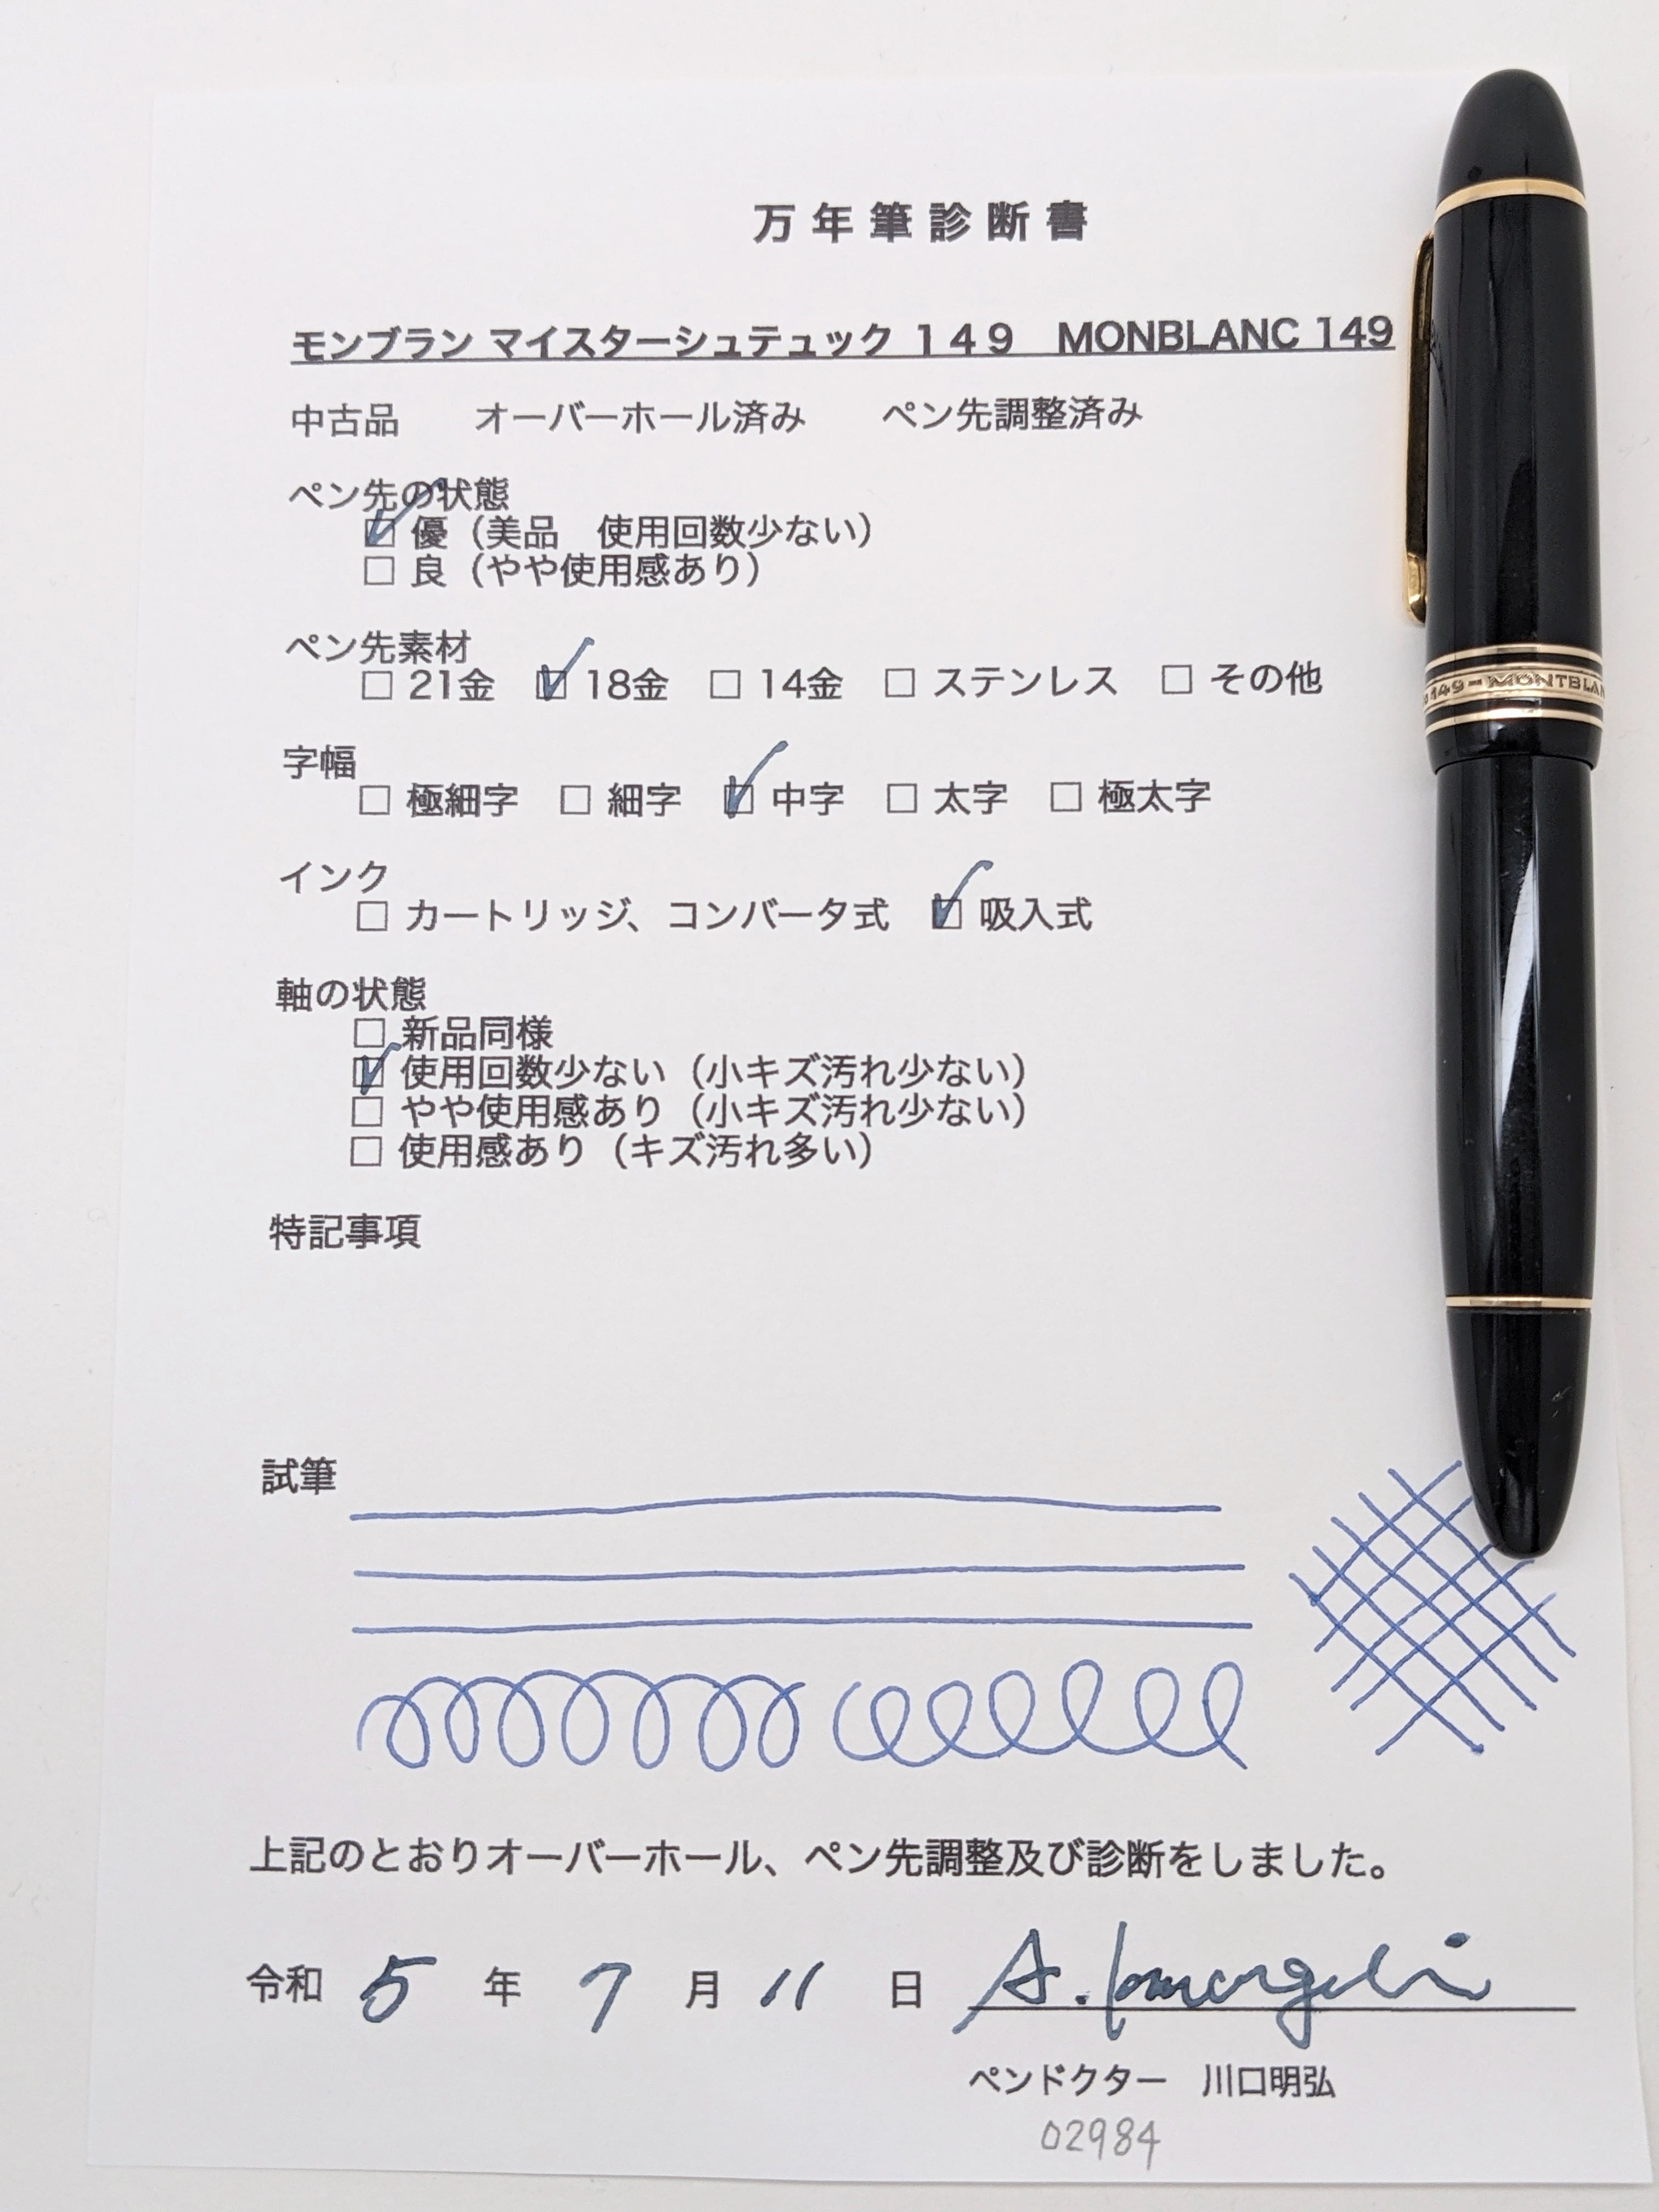 万年筆診断書
モンブラン マイスターシュテュック １４９　MONBLANC 149
中古品　　オーバーホール済み　　ペン先調整済み
ペン先の状態
☑ 優（美品　使用回数少ない）
□ 良（やや使用感あり）
ペン先素材
□ 21金　☑ 18金　□ 14金　□ ステンレス　□ その他
149-MONTBLAN
字幅
□ 極細字　□ 細字　☑ 中字　□ 太字　□ 極太字
インク
□ カートリッジ、コンバータ式　☑ 吸入式
軸の状態
□ 新品同様
☑ 使用回数少ない（小キズ汚れ少ない）
□ やや使用感あり（小キズ汚れ少ない）
□ 使用感あり（キズ汚れ多い）
特記事項
試筆
上記のとおりオーバーホール、ペン先調整及び診断をしました。
令和 5 年 7 月 11 日
ペンドクター　川口明弘
02984